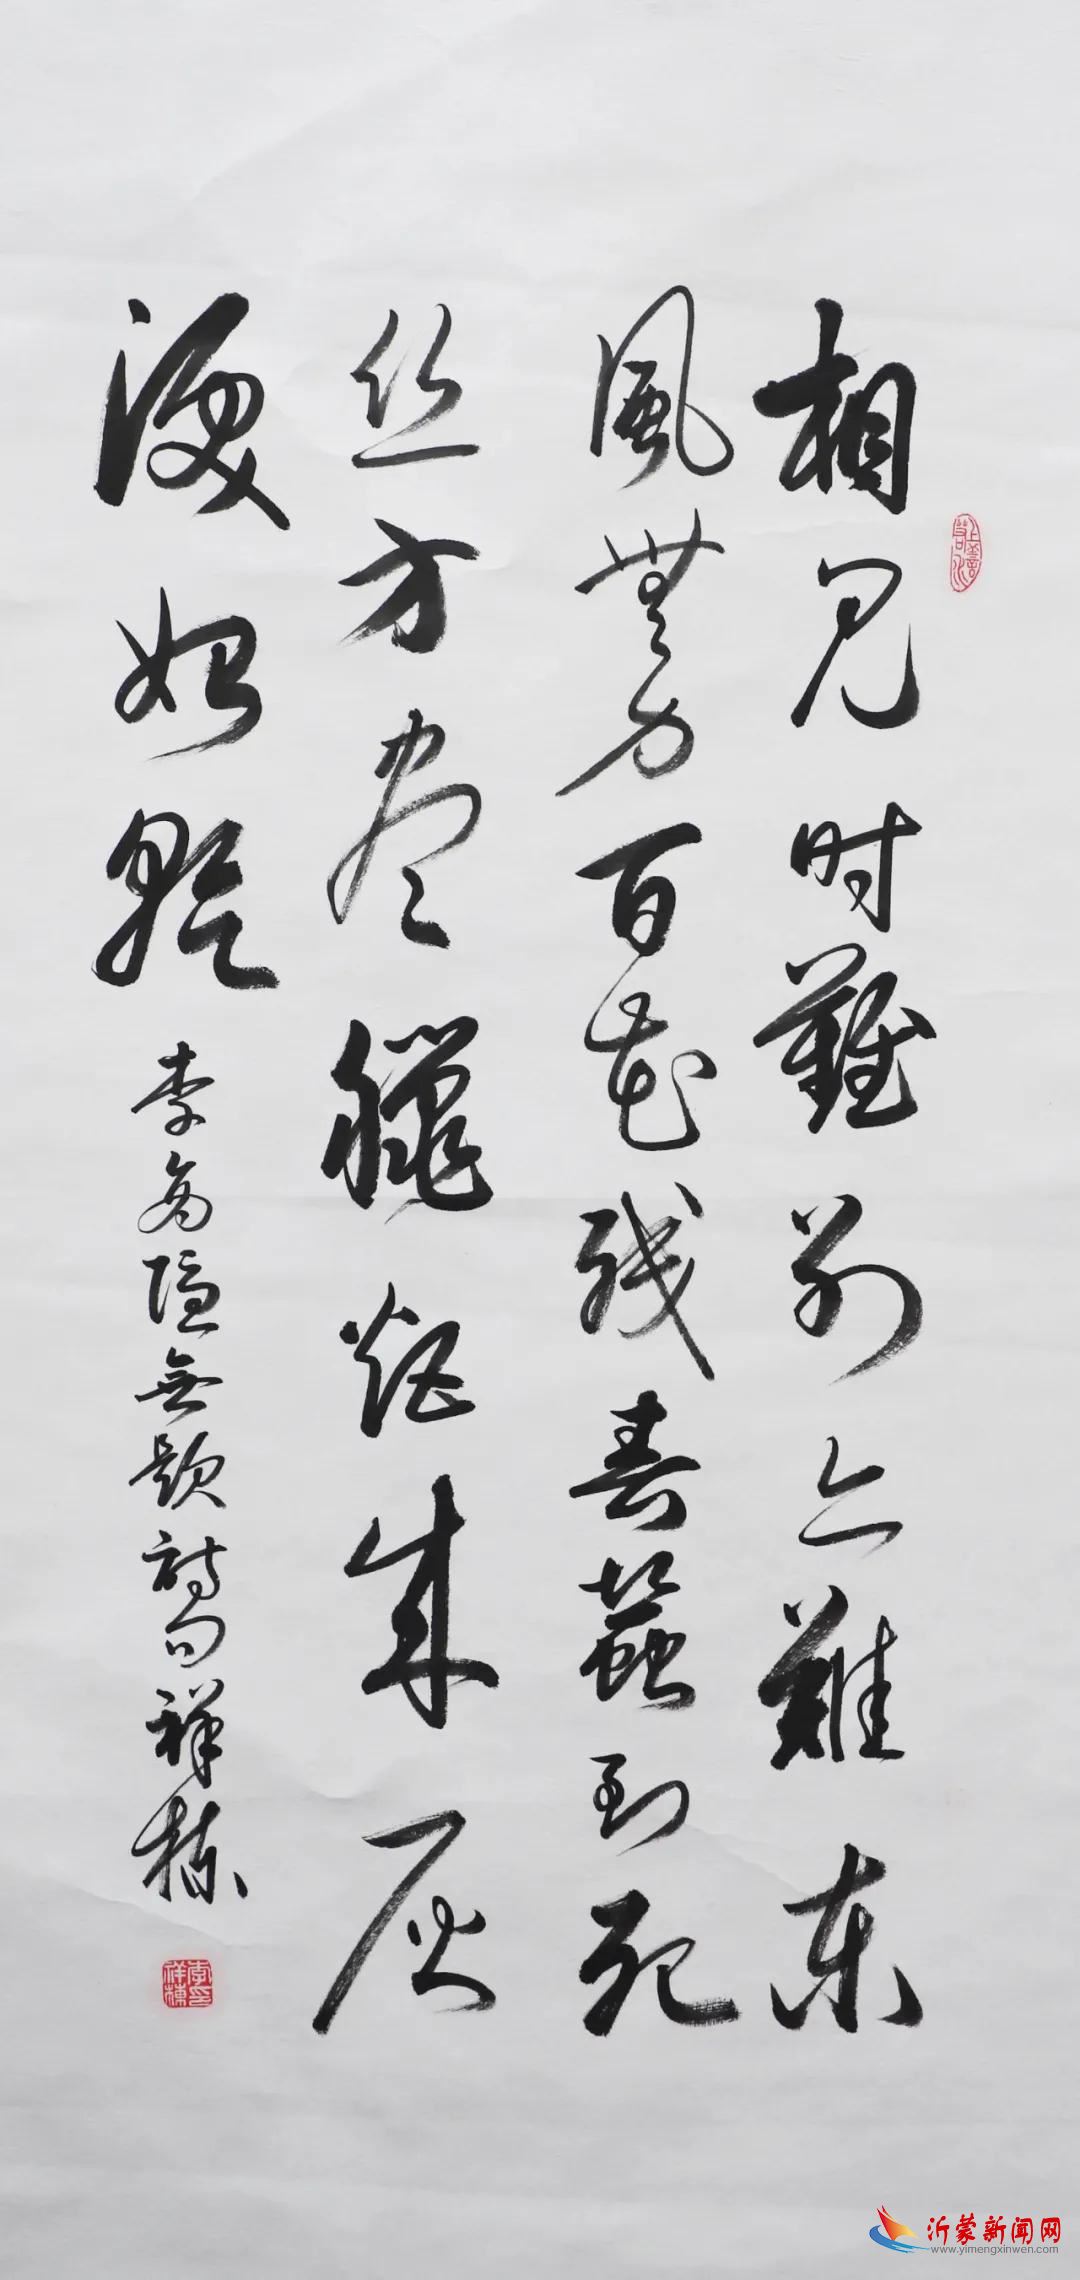 上善若水
相見时難别亦難東
風無力百花残春蠶到死
丝方盡蠟炬成灰
淚始乾
李商隱無題詩句祥栋
李印祥棟
沂蒙新闻网
www.yimengxinwen.com